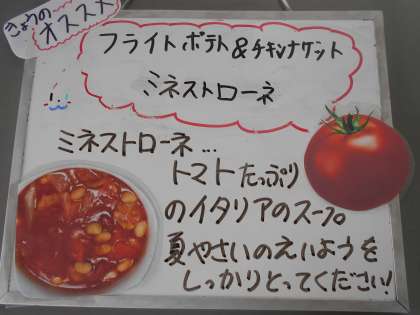 きょうの
オススメ
フライトポテト&チキンナゲット
ミネストローネ
ミネストローネ...
トマトたっぷり
のイタリアのスープ。
夏やさいのえいようを
しっかりとってください!